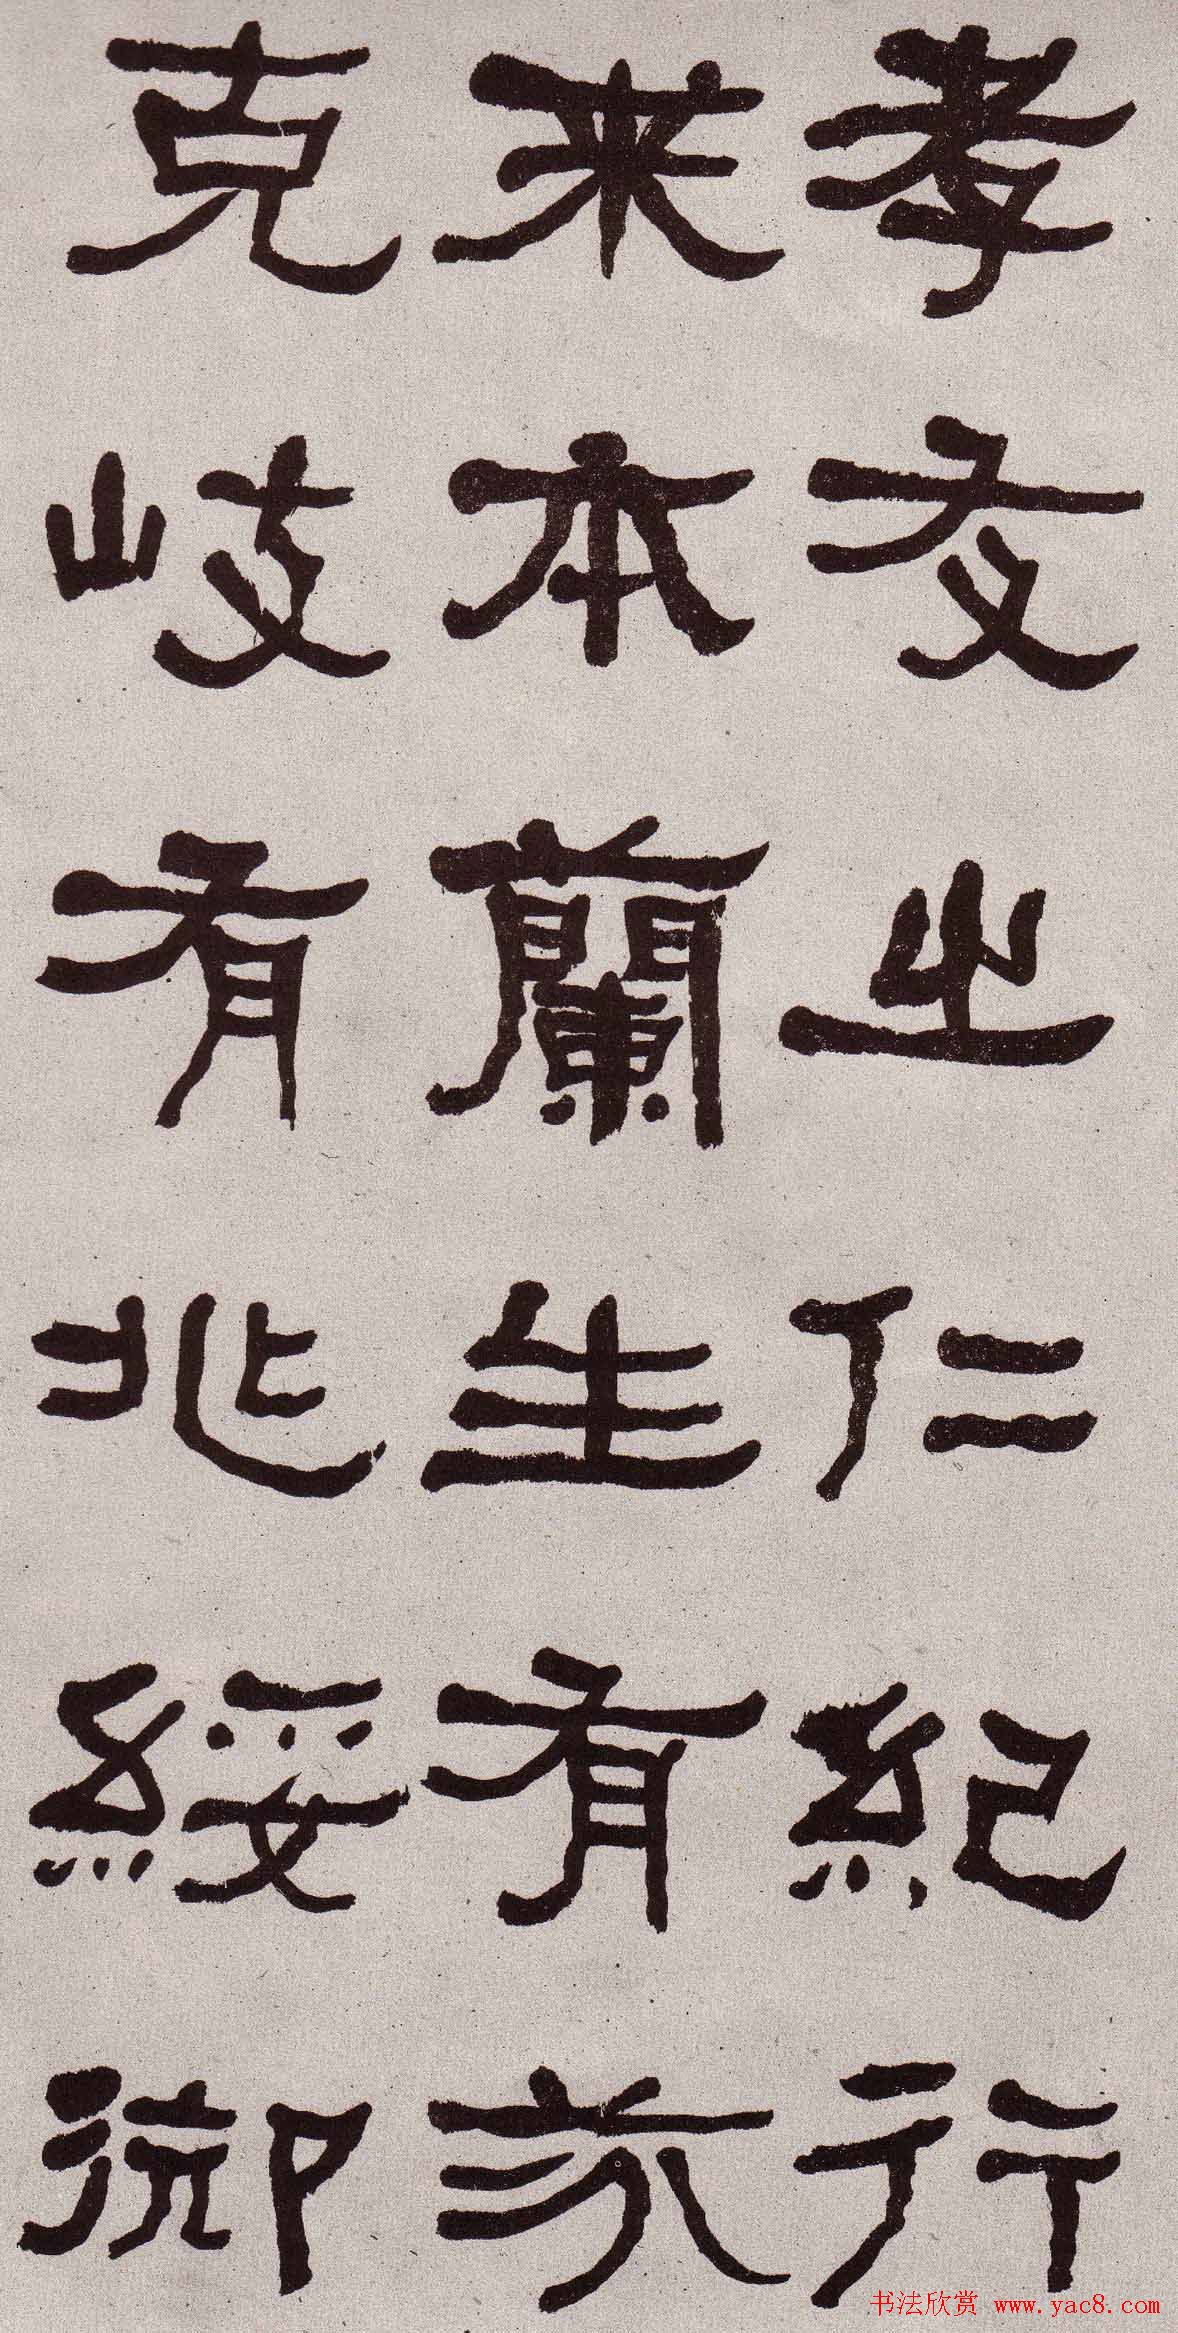 孝友之仁紀行
来本蘭生有芬
克岐有兆綏御
书法欣赏 www.yac8.com